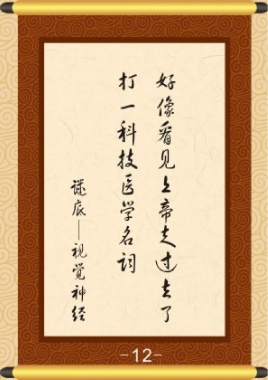 好像看见上帝走过去了
打一科技医学名词
谜底——视觉神经
-12-